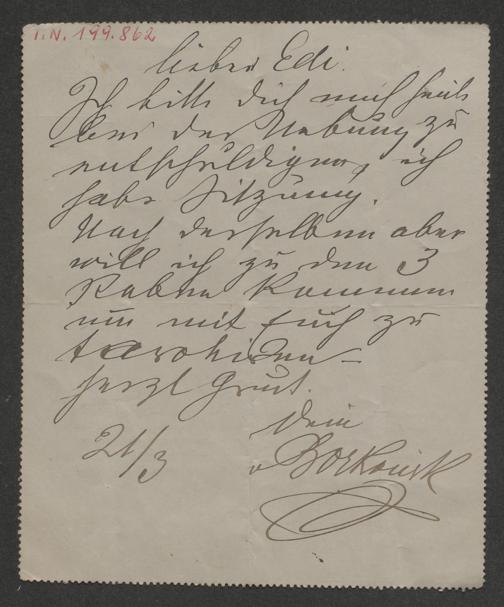 I.N. 199.862
lieber Edi.
Ich bitte dich mich heute
bei der Uebung zu
entschuldigen, ich
habe Sitzung.
Nach derselben aber
will ich zu den 3
Raben kommen
um mit Euch zu
tarokieren –
herzl Gruß.
Dein
21/3